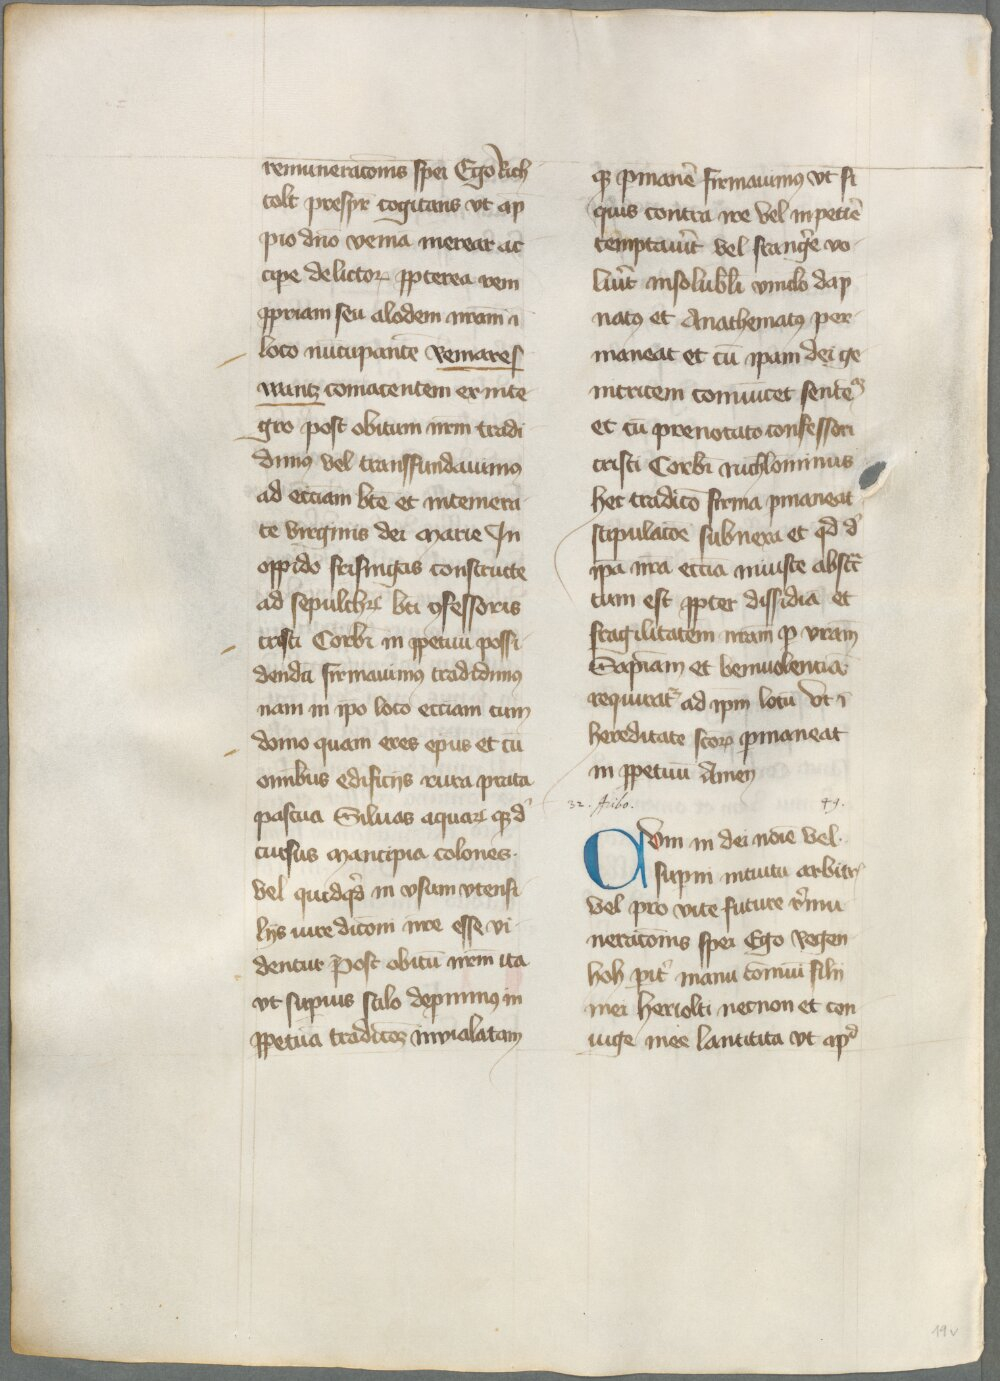 remuneracōnis spei Ego Rich
colt prespr̄ cogitans vt ap
pio dn̄o venia merear ac
cipe delictoꝝ ꝓpterea rem
ꝓpriam seu alodem nr̄am ī
loco nūcupante Remares
wuntz comacentem ex inte
gro post obitum nr̄m tradi
dimꝰ vel transfundauimꝰ
ad ecc̄iam bt̄e et intemera
te virginis dei Marie In
oppido frisingas constructe
ad sepulchrꝝ bt̄i ꝯfessoris
cristi Corbi in ꝑpetuū possi
dendā firmauimꝰ tradidimꝰ
nam in ip̄o loco ecc̄iam cum
domo quam eres ep̄us et cū
om̄ibus edificijs rura prata
pascua Siluas aquaꝝ qꝫ d
cursus Mancipia colones.
vel quidqd̄ in vsum vtensi
lijs iure dic̄oni nr̄e esse vi
dentur Post obitū nr̄m ita
vt sup̄ius stilo dep̄mimꝰ in
ꝑpetuā tradic̄oēꝫ inuialatam
qꝫ ꝑmanē firmauimꝰ vt si
quis contra nr̄e vel inpetiē
temptauīt vel frangēe vo
luīt insolubli vinclo dāp
natꝰ et Anathematꝰ per
maneat et cū ip̄am dei ge
nitricem comūicet sentē
et cū prenotato confessori
cristi Corbi nichlominus
hec tradic̄o firma ꝑmaneat
stipulac̄oe subnexa et qd̄ d
ip̄a nr̄a ecc̄ia iniuste abstr
ctum est ꝓpter dissidiā et
fragilitatem nr̄am ꝑ vr̄am
Sapiēam et beniuolentiā
requirat̉ ad ip̄m locū vt ī
hereditate sc̄oꝝ ꝑmaneat
in ꝑpetuū Amen
32. Aribo. 49.
Dvm in dei noīe vel.
sup̄ni intuitu arbitr
vel pro vite future r̄mu
nerac̄onis spei Ego Regen
hoh prit̉ manu com̄ui filij
mei heriolti necnon et con
iuge mee lantitita vt ap̄d
19v